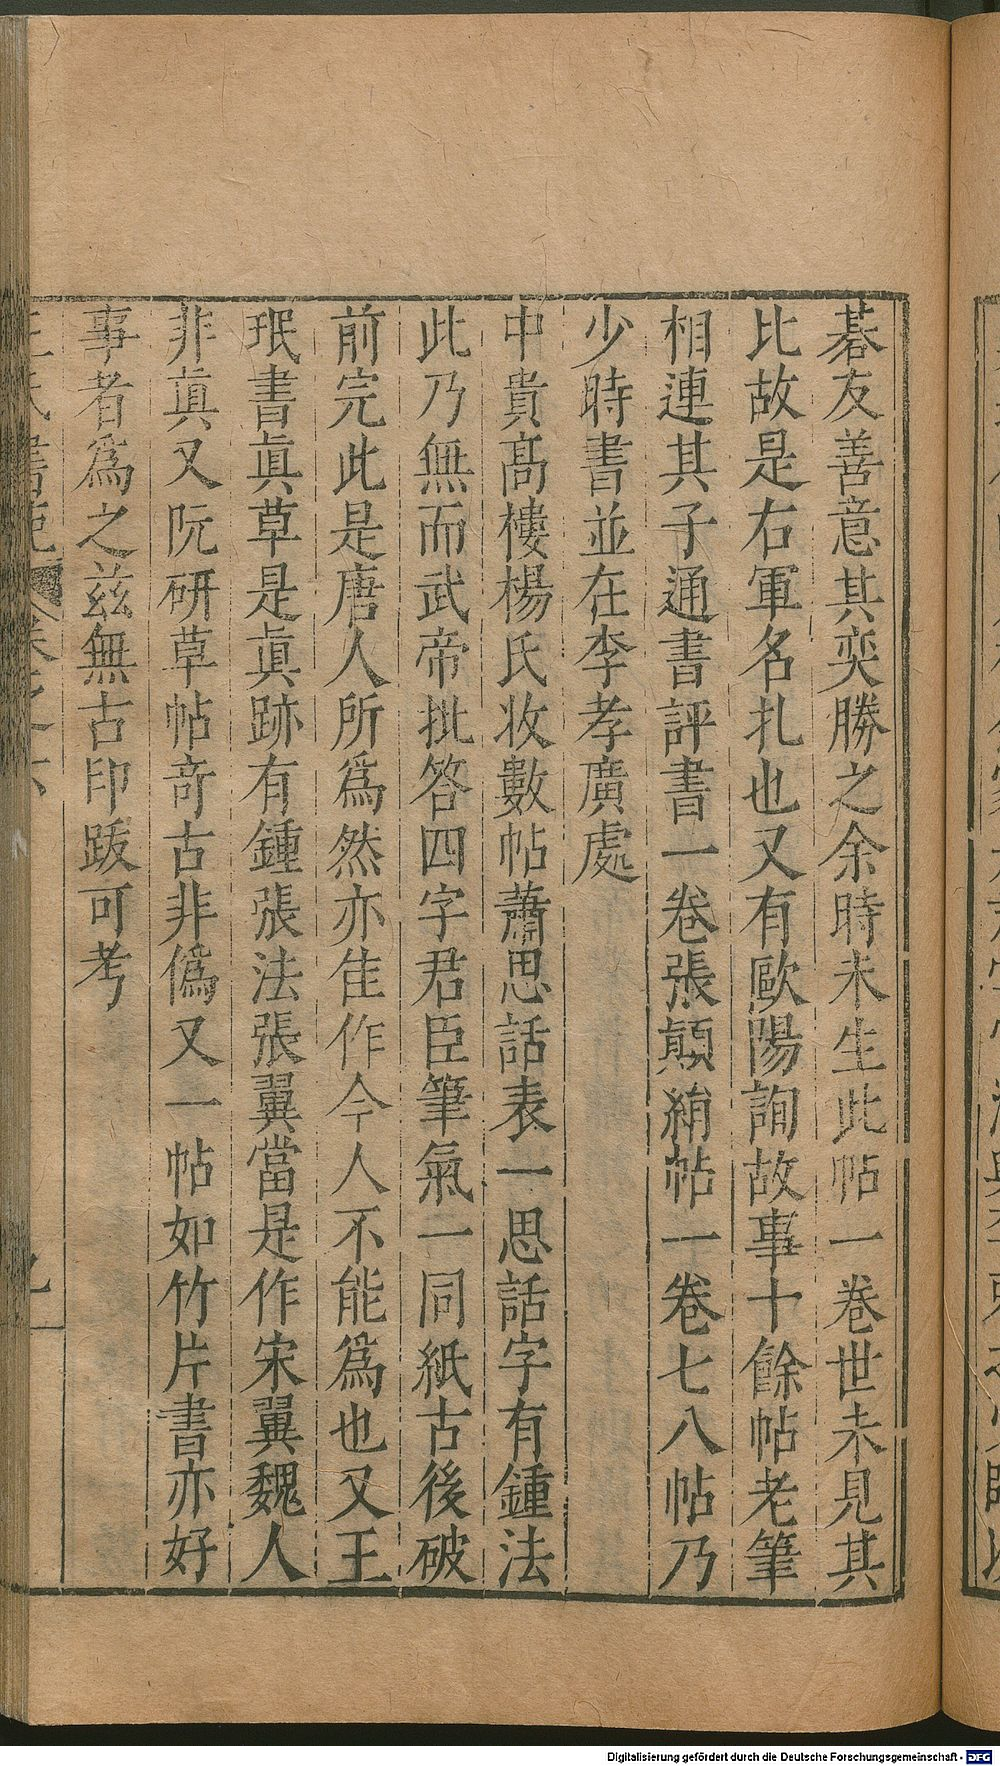 碁友善意其奕勝之余時未生此帖一卷世未見其
比故是右軍名扎也又有歐陽詢故事十餘帖老筆
相連其子通書評書一卷張顛絹帖一卷七八帖乃
少時書並在李孝廣處
中貴髙樓楊氏收數帖蕭思話表一思話字有鍾法
此乃無而武帝批答四字君臣筆氣一同紙古後破
前完此是唐人所爲然亦佳作今人不能爲也又王
珉書眞草是眞跡有鍾張法張翼當是作宋翼魏人
非眞又阮研草帖竒古非僞又一帖如竹片書亦好
事者爲之兹無古印跋可考
Digitalisierung gefördert durch die Deutsche Forschungsgemeinschaft - DFG